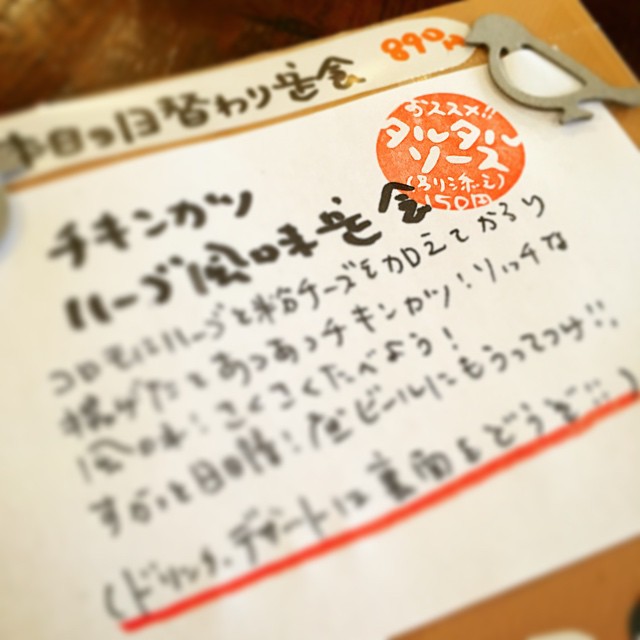 本日の日替わり定食 890円
おススメ!!
タルタル
ソース
(別り添え)
150円
チキンカツ
ハーブ風味定食
コロモにハーブと粉チーズを加えてからり
揚げたとあつあつチキンカツ!リッチな
風味!さくさくたべよう!
すかっと日曜!昼ビールにもうってつけ!!
(ドリンク、デザートは裏面をどうぞ!!)